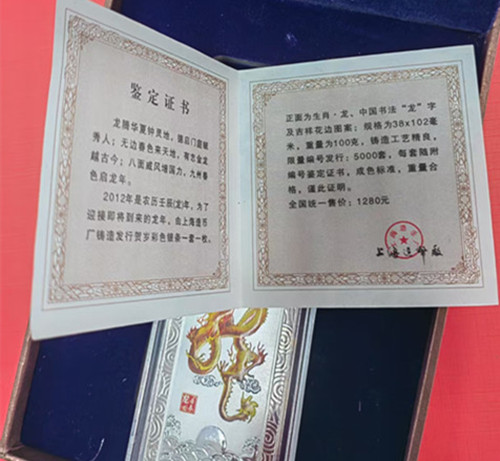 鉴定证书
龙腾华夏钟灵地，银启门庭毓
秀人；无边春色来天地，有志金龙
越古今；八面威风增国力，九州春
色启龙年。
2012年是农历壬辰(龙)年，为了
迎接即将到来的龙年，由上海造币
厂铸造发行贺岁彩色银条一套一枚。
正面为生肖·龙、中国书法“龙”字
及吉祥花边图案；规格为38x102毫
米，重量为100克，铸造工艺精良，
限量编号发行：5000套，每套随附
编号鉴定证书，成色标准，重量合
格，谨此证明。
全国统一售价：1280元
上海造币厂